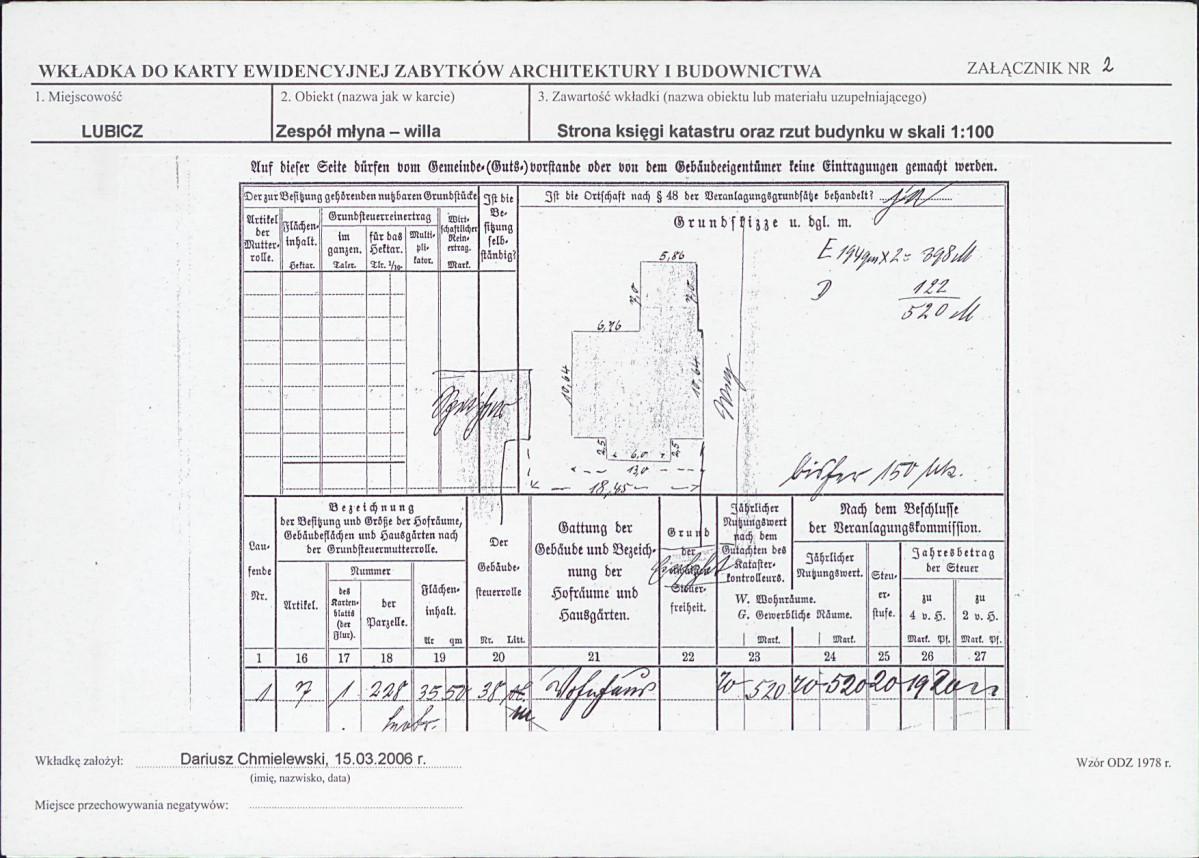 WKŁADKA DO KARTY EWIDENCYJNEJ ZABYTKÓW ARCHITEKTURY I BUDOWNICTWA
ZAŁĄCZNIK NR 2
1. Miejscowość
LUBICZ
2. Obiekt (nazwa jak w karcie)
Zespół młyna – willa
3. Zawartość wkładki (nazwa obiektu lub materiału uzupełniającego)
Strona księgi katastru oraz rzut budynku w skali 1:100
Auf dieser Seite dürfen vom Gemeinde-(Guts-)vorstande oder von dem Gebäudeeigentümer keine Eintragungen gemacht werden.
Der zur Besitzung gehörenden nutzbaren Grundstücke
Artikel
der
Mutter-
rolle.
Flächen-
inhalt.
Hektar.
Grundsteuerreinertrag
im
ganzen.
Taler.
für das
Hektar.
Tlr. 1/10
Multi-
pli-
kator.
Wirt-
schaftlicher
Rein-
ertrag.
Mark.
Ist die
Be-
sitzung
selb-
ständig?
Ist die Ortschaft nach § 48 der Veranlagungsgrundsätze behandelt? ja
Grundskizze u. dgl. m.
E 194 qm x 2 = 398 M
D 122
520 M
5,86
7,0
7,0
6,76
10,64
10,64
Speicher
Weg
2,5
6,0
2,5
13,0
18,45
bisher 150 Mk.
Lau-
fende
Nr.
Bezeichnung
der Besitzung und Größe der Hofräume,
Gebäudeflächen und Hausgärten nach
der Grundsteuermutterrolle.
Artikel.
Nummer
des
Karten-
blatts
(der
Flur).
der
Parzelle.
Flächen-
inhalt.
Ar qm
Der
Gebäude-
steuerrolle
Nr. Litt.
Gattung der
Gebäude und Bezeich-
nung der
Hofräume und
Hausgärten.
Grund
der
Steuer-
freiheit.
Jährlicher
Nutzungswert
nach dem
Gutachten des
Kataster-
kontrolleurs.
W. Wohnräume.
G. Gewerbliche Räume.
Mark.
Nach dem Beschlusse
der Veranlagungskommission.
Jährlicher
Nutzungswert.
Mark.
Steu-
er-
stufe.
Jahresbetrag
der Steuer
zu
4 v. H.
Mark. Pf.
zu
2 v. H.
Mark. Pf.
1 16 17 18 19 20 21 22 23 24 25 26 27
1 7 1 228 35 50 38 Wohnhaus 520 520 20 19 20
Wkładkę założył: Dariusz Chmielewski, 15.03.2006 r.
(imię, nazwisko, data)
Wzór ODZ 1978 r.
Miejsce przechowywania negatywów: